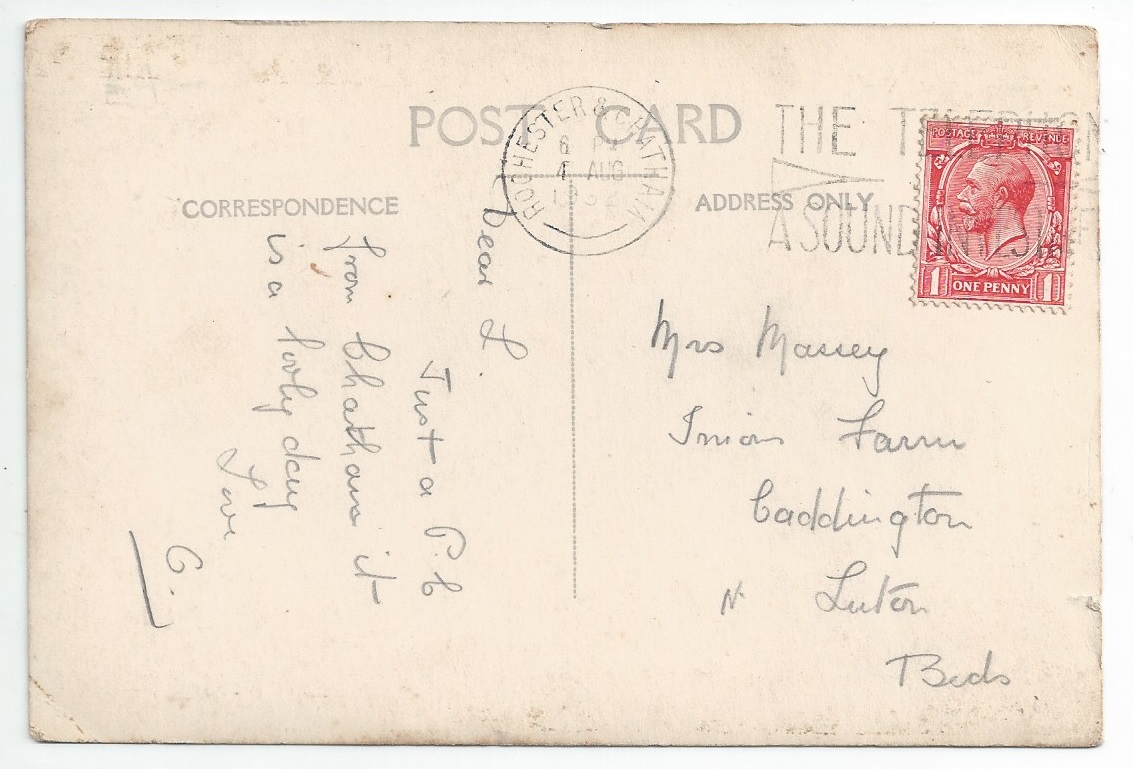 POST CARD
ROCHESTER & CHATHAM
6 PM
4 AUG
1932
THE
A SOUND
POSTAGE REVENUE
1 ONE PENNY 1
CORRESPONDENCE
ADDRESS ONLY
Dear L.
Just a P.C
from Chatham it
is a lovly day
Love
C.
Mrs Massey
Farm
Caddington
Nr Luton
Beds